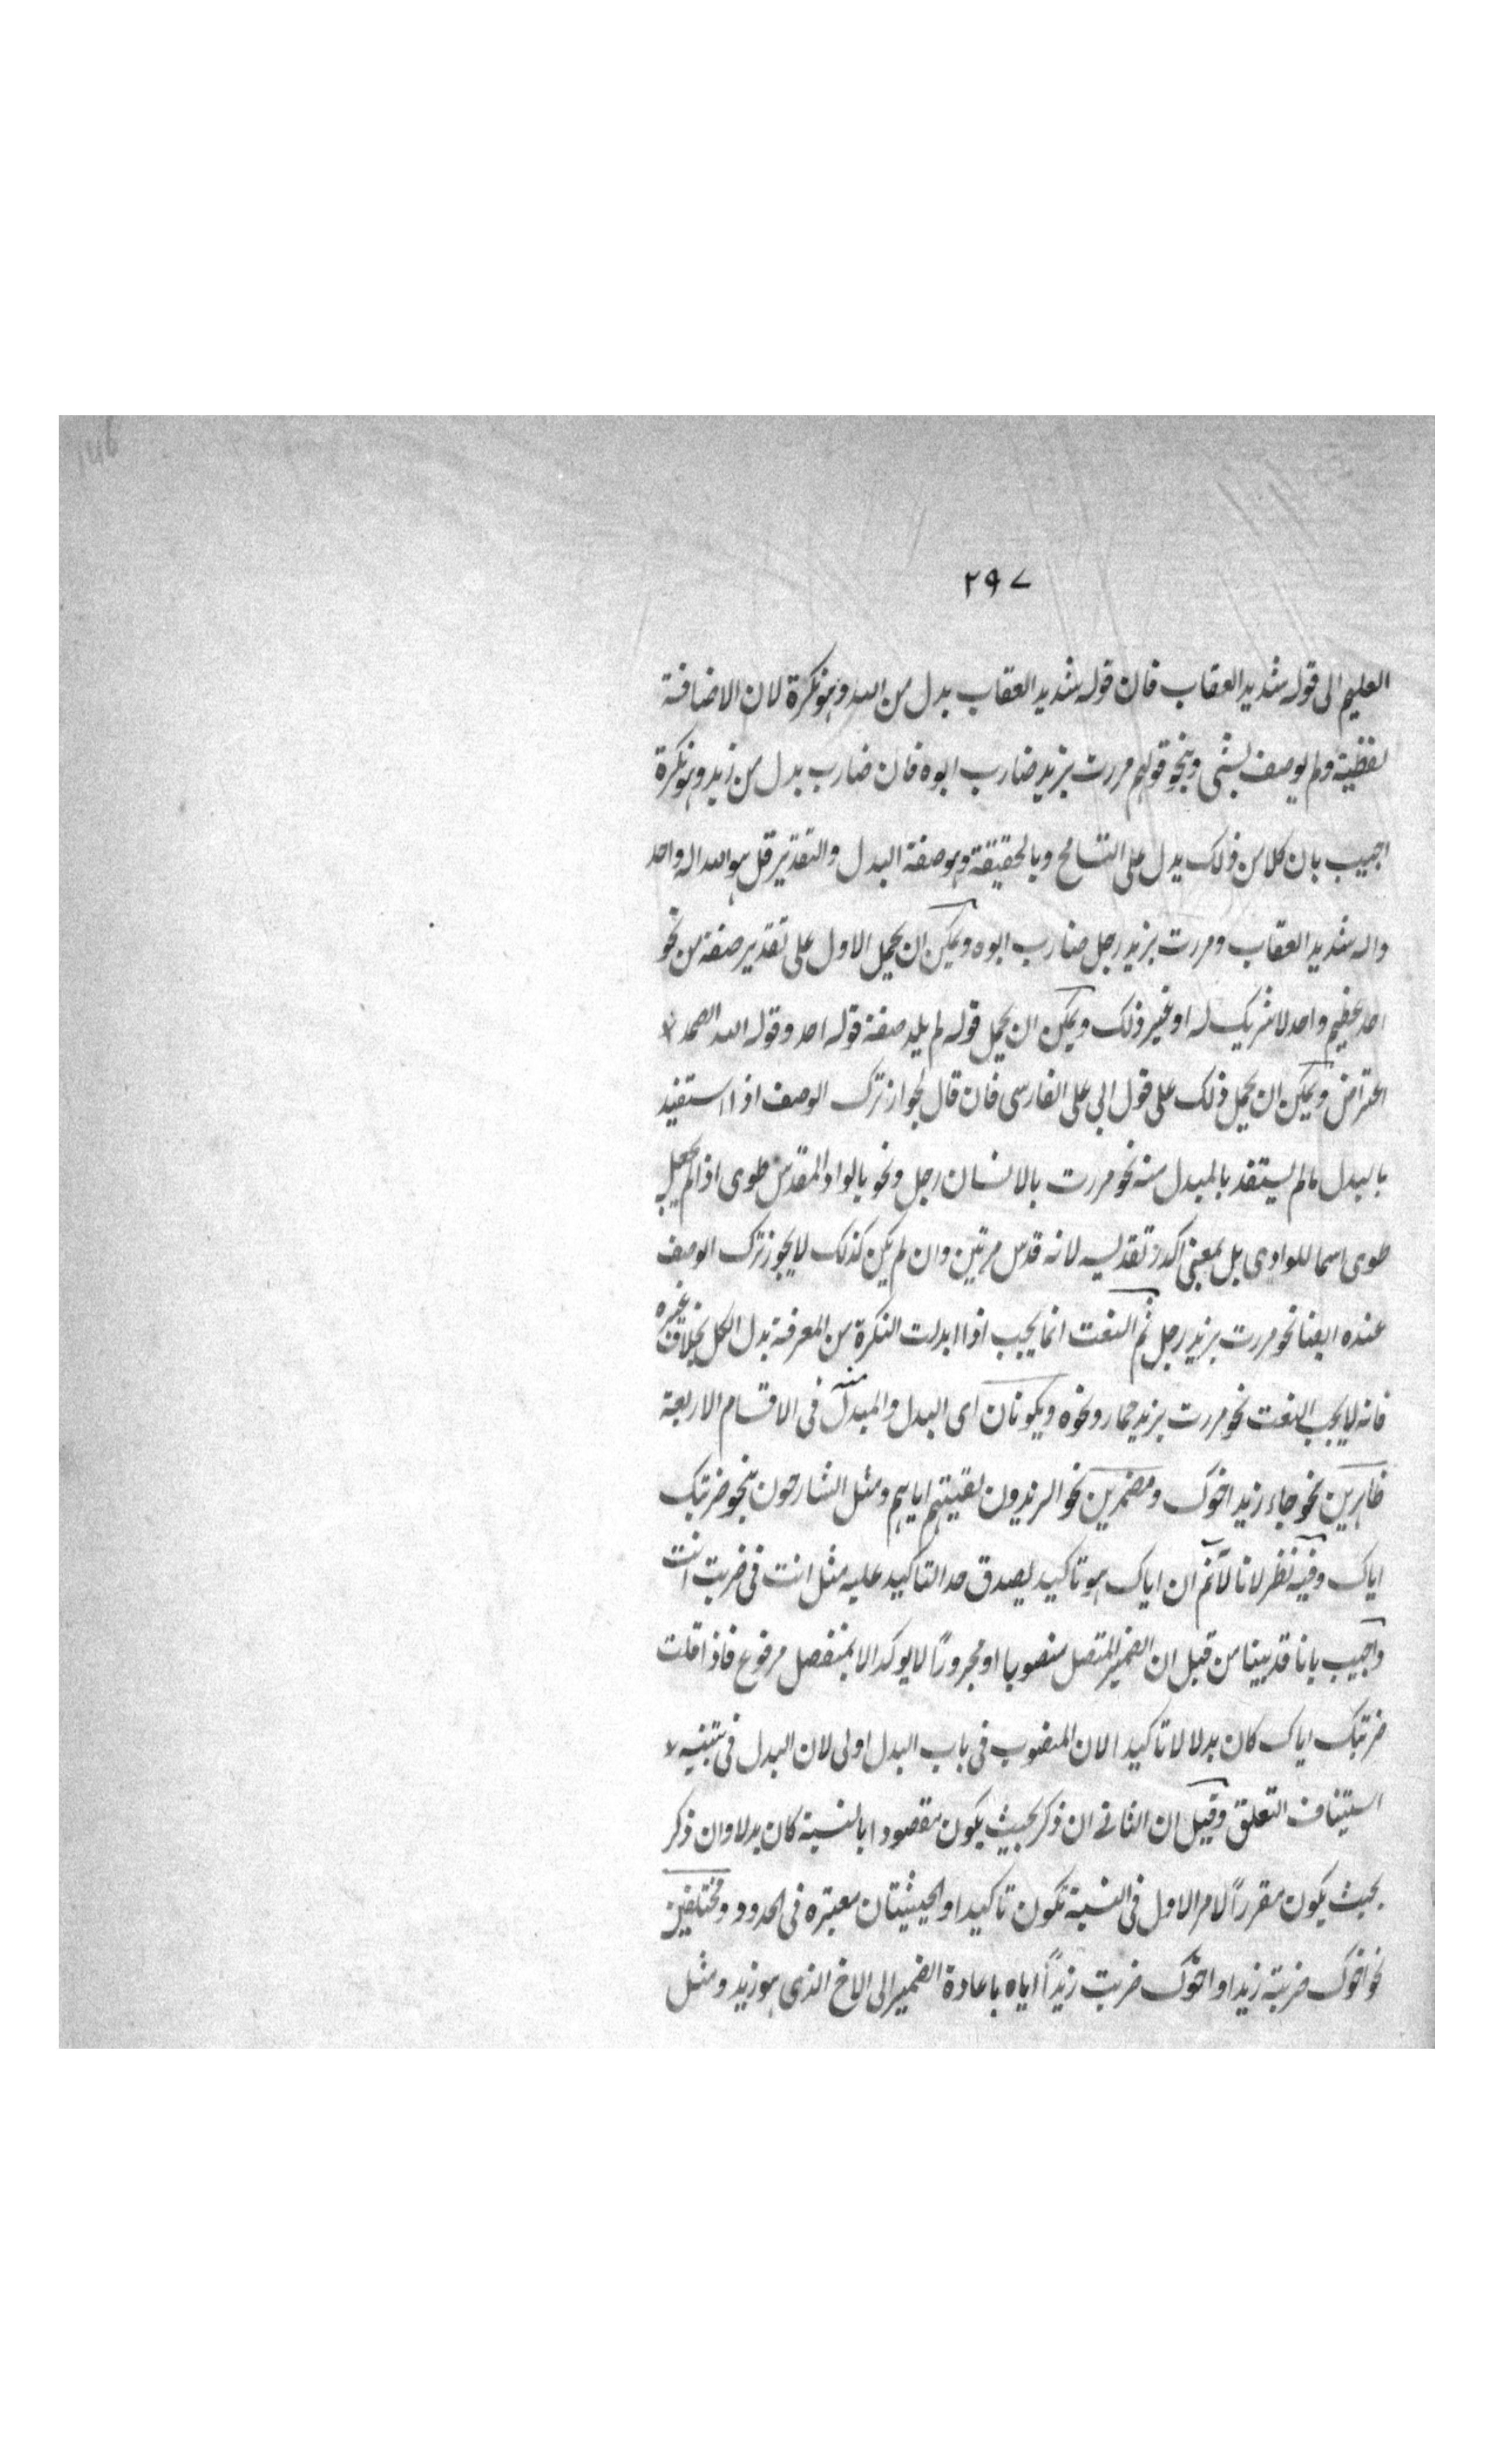 ٢٩٧
العليم الى قوله شديد العقاب فان قوله شديد العقاب بدل من الله وهو نكرة لان الاضافة
لفظية ولم يوصف بشئ وبنحو قولهم مررت بزيد ضارب ابوه فان ضارب بدل من زيد وهو نكرة
اجيب بان كلا من ذلك يدل على التسامح وبالحقيقة هو صفة البدل والتقدير قل هو الله اله واحد
واله شديد العقاب ومررت بزيد رجل ضارب ابوه ويمكن ان يحمل الاول على تقدير صفة من نحو
احد عظيم واحد لا شريك له او غير ذلك ويمكن ان يحمل قوله لم يلد صفة قوله احد وقوله الله الصمد
اعتراض ويمكن ان يحمل ذلك على قول ابى على الفارسى فان قال بجواز ترك الوصف اذا استفيد
بالبدل ما لم يستفد بالمبدل منه نحو مررت بالانسان رجل ونحو بالواد المقدس طوى اذا لم يجعل
طوى اسما للوادى بل بمعنى اكد تقديسه لانه قدس مرتين وان لم يكن كذلك لا يجوز ترك الوصف
عنده ايضا نحو مررت بزيد رجل ثم النعت انما يجب اذا ابدلت النكرة من المعرفة بدل الكل بخلاف غيره
فانه لا يجب النعت نحو مررت بزيد حمار ونحوه ويكونان اى البدل والمبدل منه فى الاقسام الاربعة
ظاهرين نحو جاء زيد اخوك ومضمرين نحو الزيدون لقيتهم اياهم ومثل الشارحون بنحو ضربتك
اياك وفيه نظر لانا لا نم ان اياك هو تاكيد لصدق حد التاكيد عليه مثل انت فى ضربت انت
واجيب بانا قد بينا من قبل ان الضمير المتصل منصوبا او مجرورًا لا يوكد الا بمنفصل مرفوع فاذا قلت
ضربتك اياك كان بدلا لا تاكيدا لان المنصوب فى باب البدل اولى لان البدل فى
استيناف التعلق وقيل ان الثانى ان ذكر بحيث يكون مقصودا بالنسبة كان بدلا وان ذكر
بحيث يكون مقررًا لامر الاول فى النسبة تكون تاكيدا والحيثيتان معتبرة فى الحدود ومختلفين
نحو اخوك ضربته زيدا واخوك ضربت زيدًا اياه باعادة الضمير الى الاخ الذى هو زيد ومثل